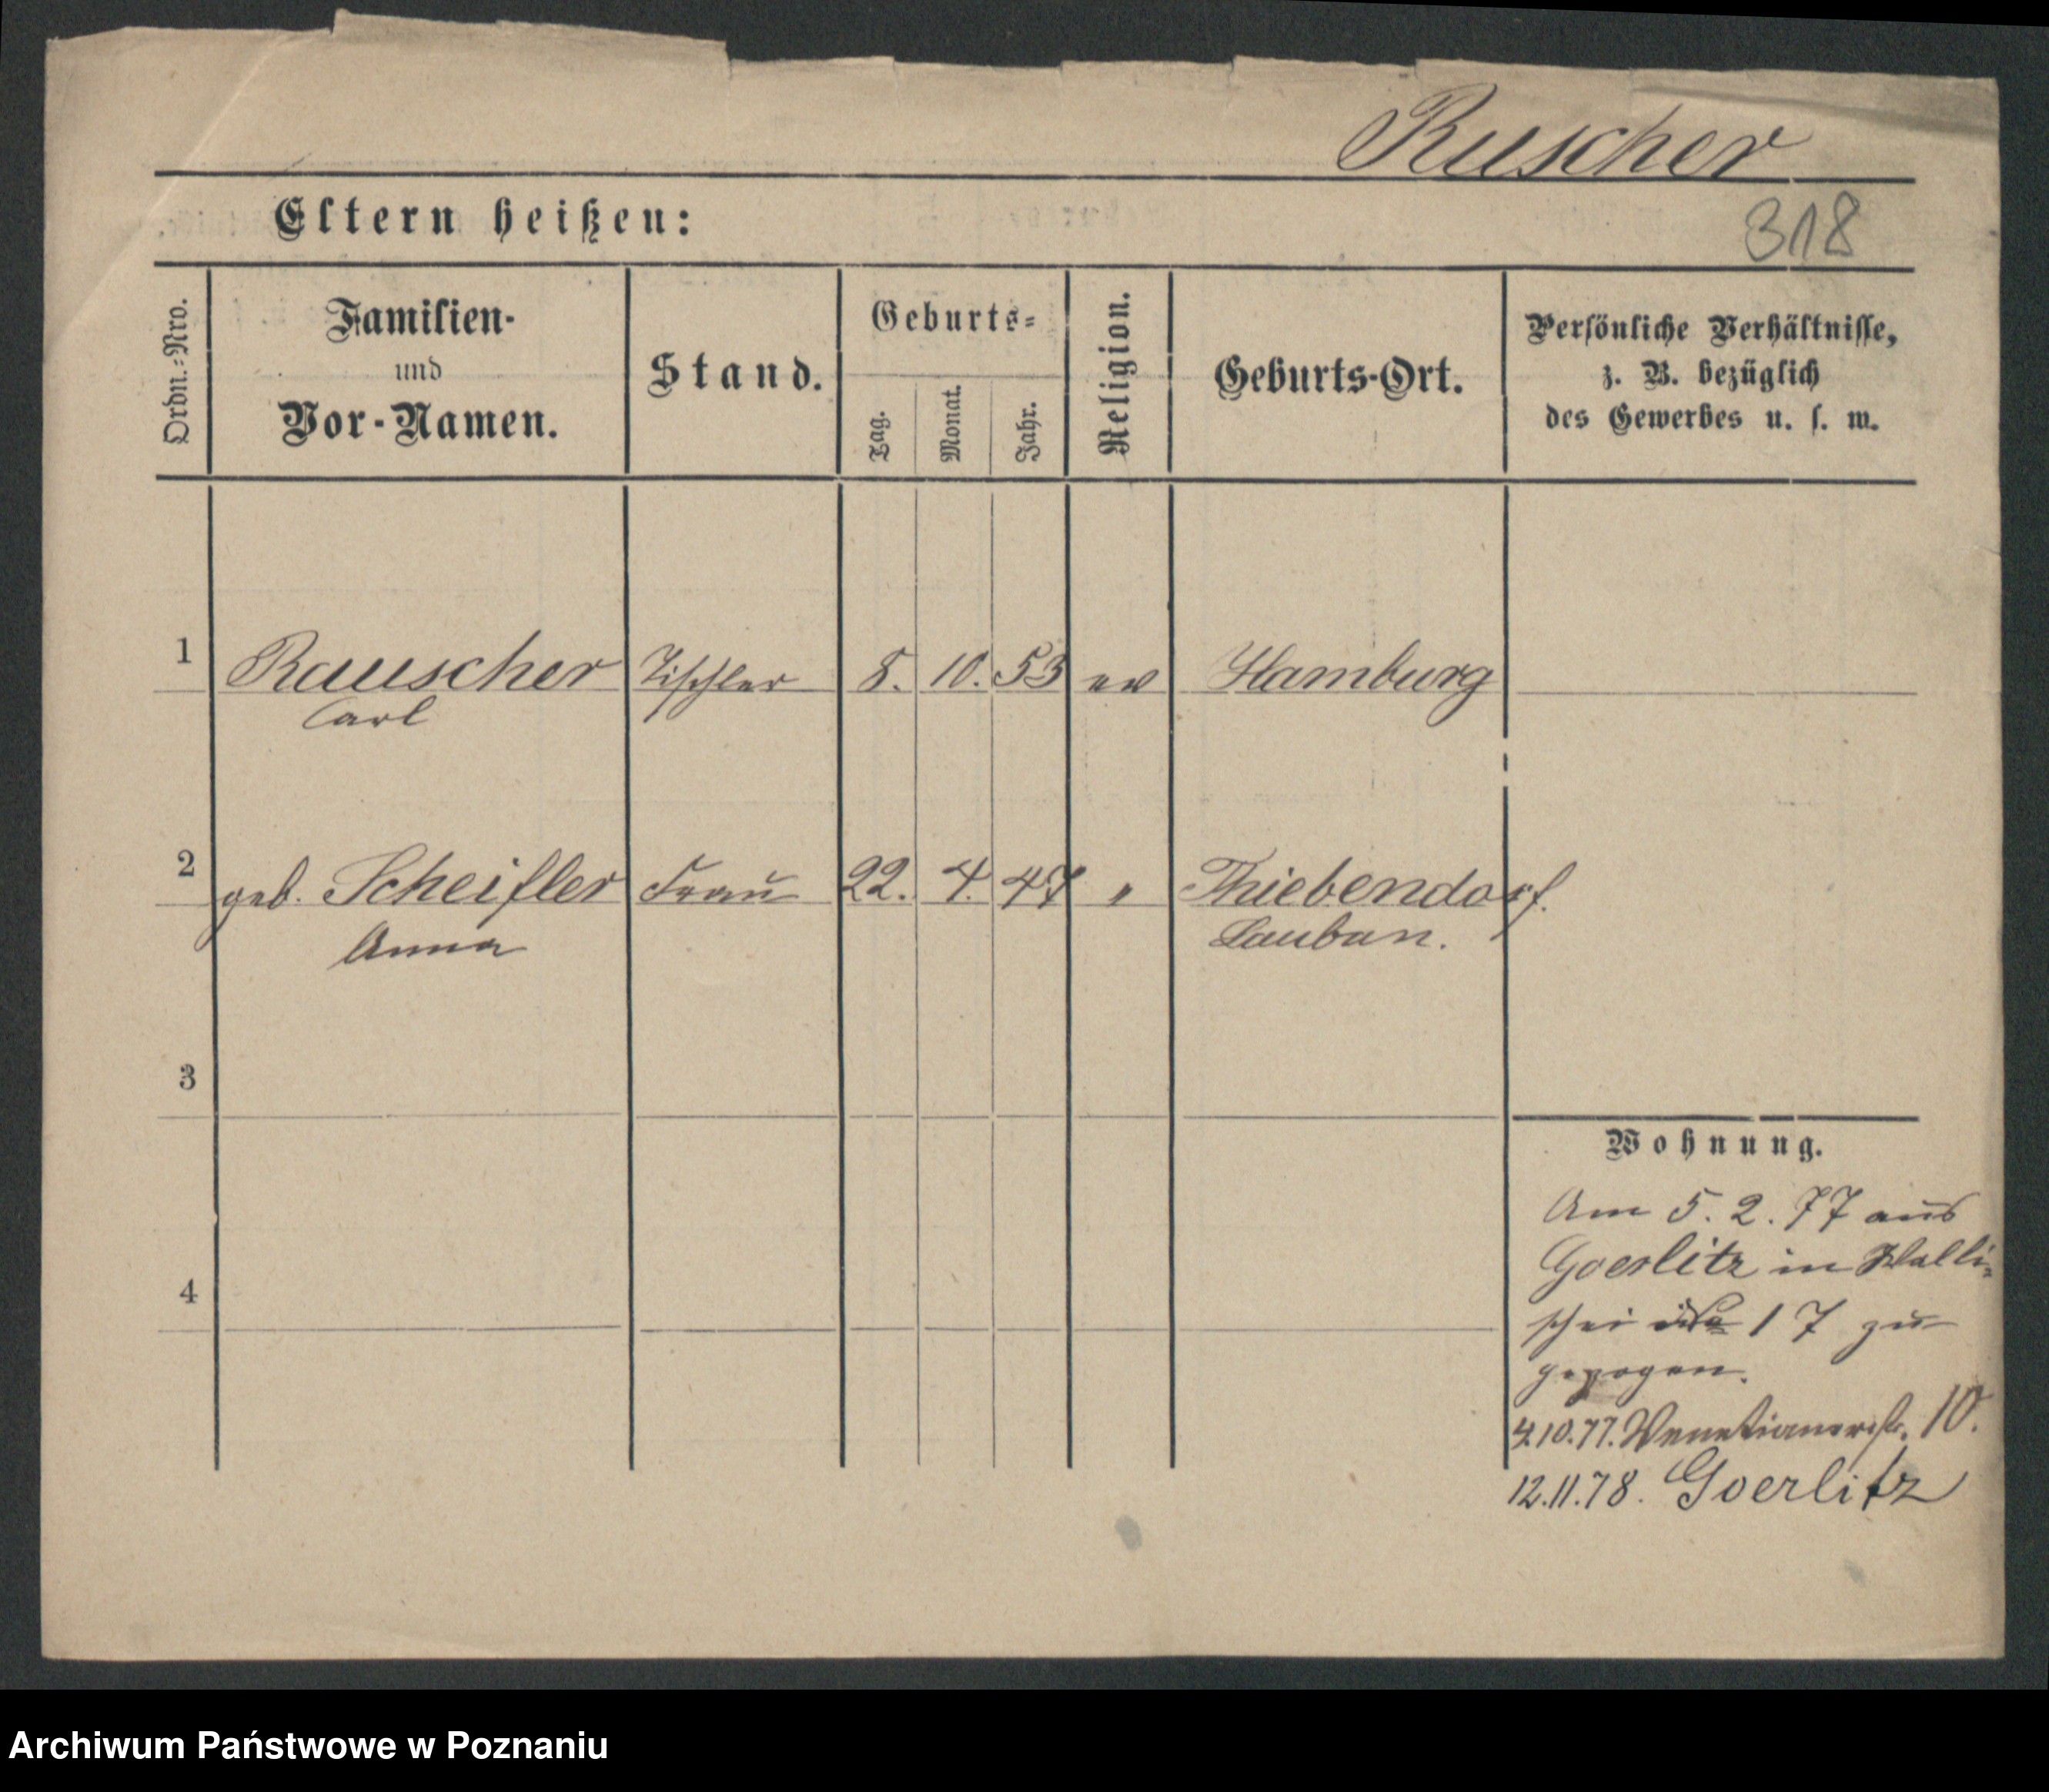 Ruscher
Eltern heißen:
318
Ordn.-Nro.
Familien-
und
Vor-Namen.
Stand.
Geburts-
Tag.
Monat.
Jahr.
Religion.
Geburts-Ort.
Persönliche Verhältnisse,
z. B. bezüglich
des Gewerbes u. s. w.
1 Rauscher Tischler 8. 10. 53 ev Hamburg
Carl
2 geb. Scheifler Frau 22. 4. 47 " Thiebendorf.
Anna Lauban.
3
4
Wohnung.
Am 5. 2. 77 aus
Goerlitz in Halli-
17 zu
gezogen.
4.10.77. Venetianerstr. 10.
12.11.78. Goerlitz
Archiwum Państwowe w Poznaniu